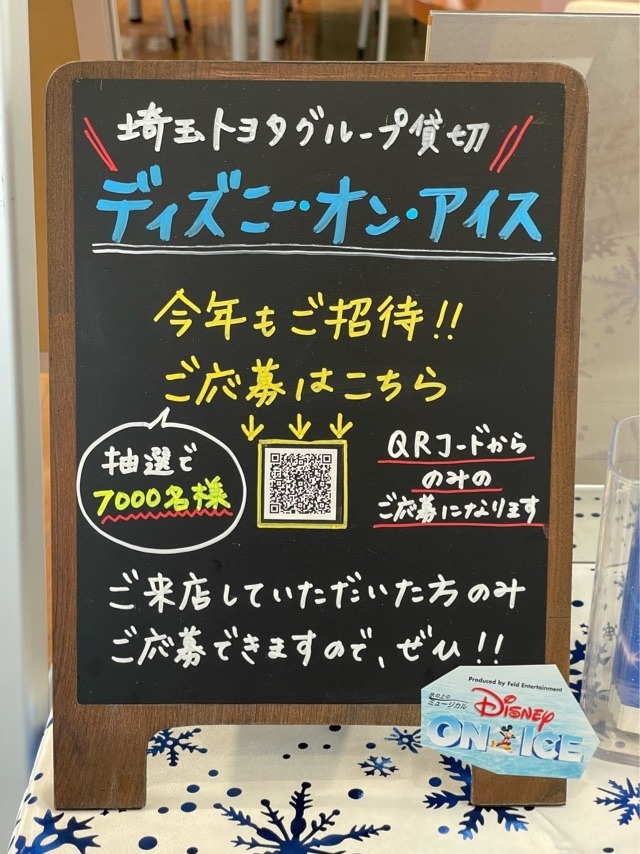 埼玉トヨタグループ貸切
ディズニー・オン・アイス
今年もご招待!!
ご応募はこちら
抽選で
7000名様
QRコードから
のみの
ご応募になります
ご来店していただいた方のみ
ご応募できますので、ぜひ!!
Produced by Feld Entertainment
氷の上の
ミュージカル
Disney
ON ICE